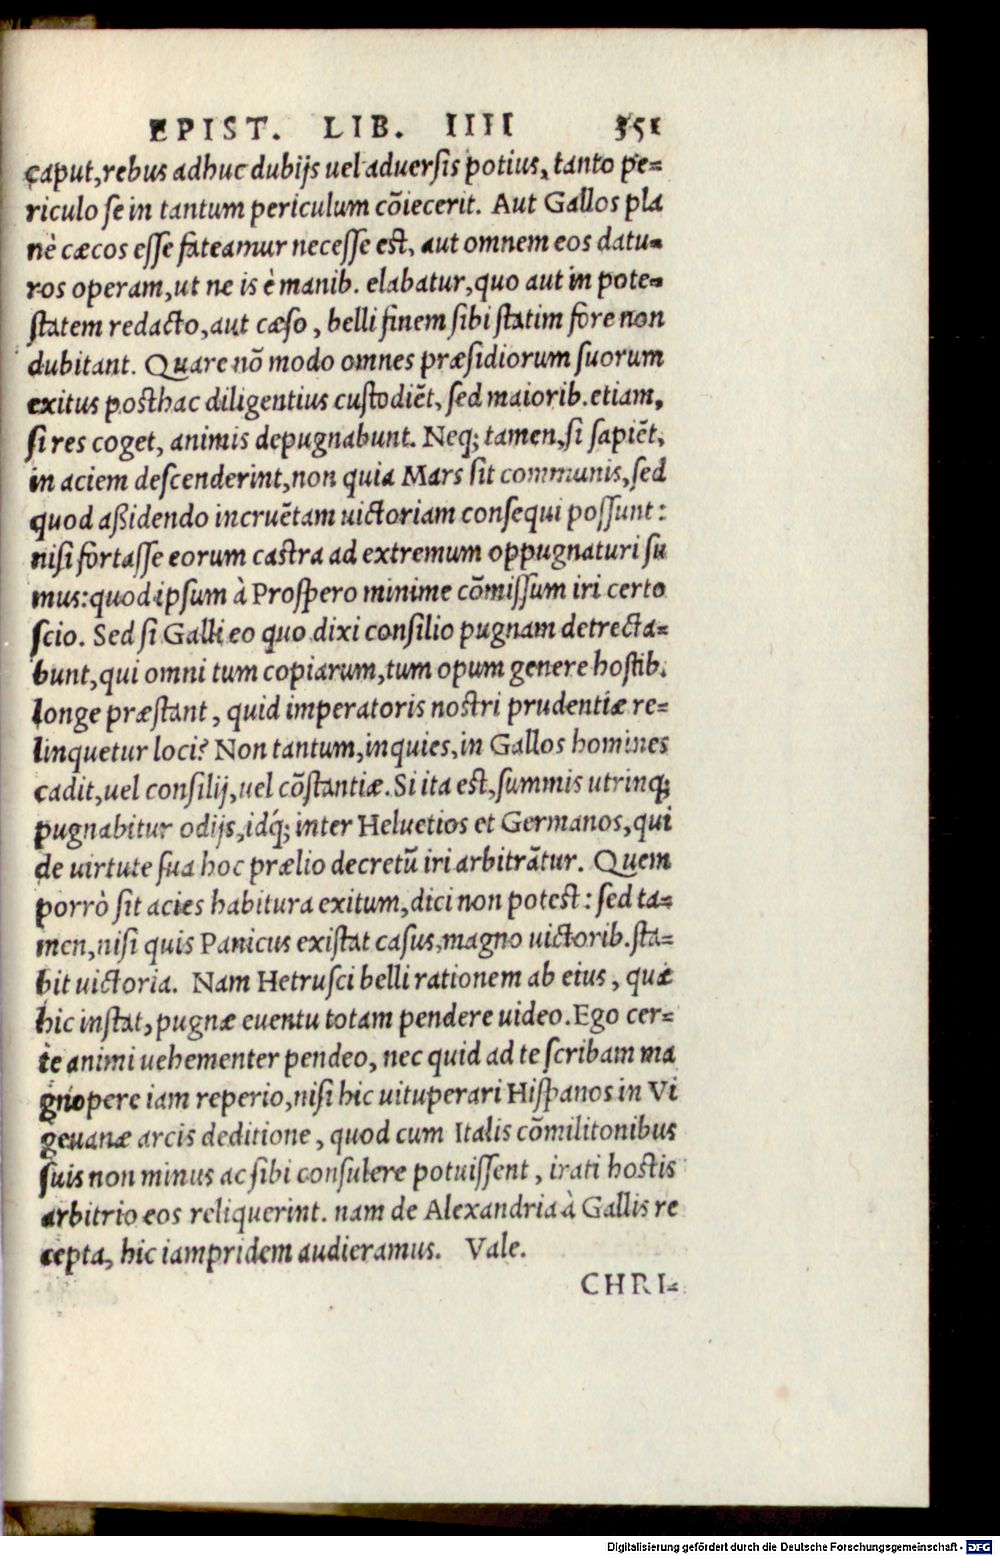 EPIST. LIB. IIII 351
caput, rebus adhuc dubijs uel aduersis potius, tanto pe-
riculo se in tantum periculum cõiecerit. Aut Gallos pla
nè cæcos esse fateamur necesse est, aut omnem eos datu-
ros operam, ut ne is è manib. elabatur, quo aut in pote-
statem redacto, aut cæso, belli finem sibi statim fore non
dubitant. Quare nõ modo omnes præsidiorum suorum
exitus posthac diligentius custodiẽt, sed maiorib. etiam,
si res coget, animis depugnabunt. Neq; tamen, si sapiẽt,
in aciem descenderint, non quia Mars sit communis, sed
quod aßidendo incruẽtam uictoriam consequi possunt:
nisi fortasse eorum castra ad extremum oppugnaturi su
mus: quod ipsum à Prospero minime cõmissum iri certo
scio. Sed si Galli eo quo dixi consilio pugnam detrecta-
bunt, qui omni tum copiarum, tum opum genere hostib.
longe præstant, quid imperatoris nostri prudentiæ re-
linquetur loci? Non tantum, inquies, in Gallos homines
cadit, uel consilij, uel cõstantiæ. Si ita est, summis utrinq;
pugnabitur odijs, idq́; inter Heluetios et Germanos, qui
de uirtute sua hoc prælio decretũ iri arbitrãtur. Quem
porrò sit acies habitura exitum, dici non potest: sed ta-
men, nisi quis Panicus existat casus, magno uictorib. sta-
bit uictoria. Nam Hetrusci belli rationem ab eius, quæ
hic instat, pugnæ euentu totam pendere uideo. Ego cer-
te animi uehementer pendeo, nec quid ad te scribam ma
gnopere iam reperio, nisi hic uituperari Hispanos in Vi
geuanæ arcis deditione, quod cum Italis cõmilitonibus
suis non minus ac sibi consulere potuissent, irati hostis
arbitrio eos reliquerint. nam de Alexandria à Gallis re
cepta, hic iampridem audieramus. Vale.
CHRI-
Digitalisierung gefördert durch die Deutsche Forschungsgemeinschaft - DFG